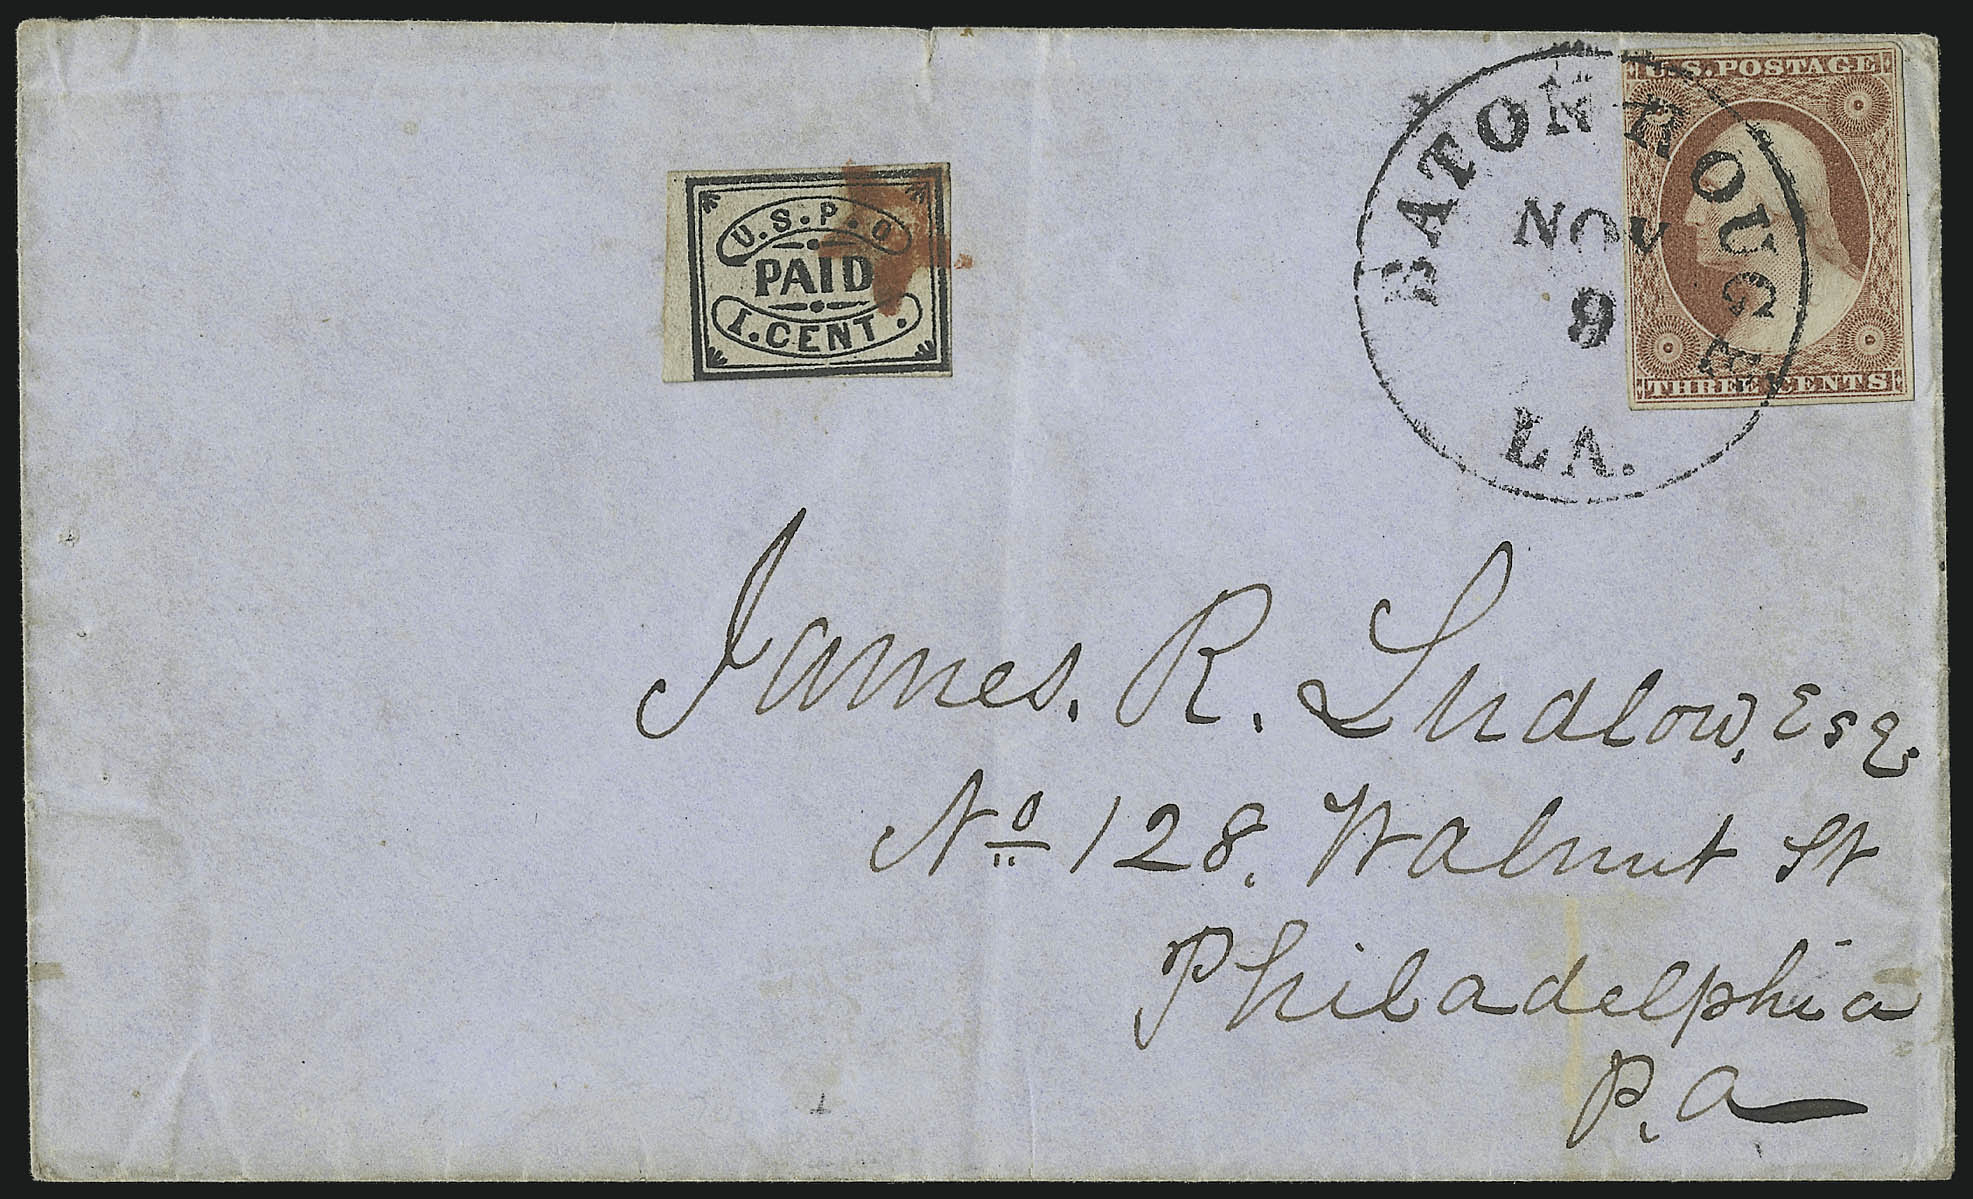 U.S.P.O
PAID
1.CENT.
BATON ROUGE
NOV
9
LA.
U.S. POSTAGE
THREE CENTS
James. R. Ludlow, Esq.
No 128. Walnut St
Philadelphia
P. a